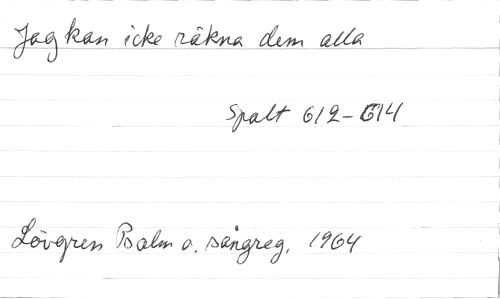 Jag kan icke räkna dem alla
Spalt 612-614
Lövgren Psalm o. sångreg. 1964